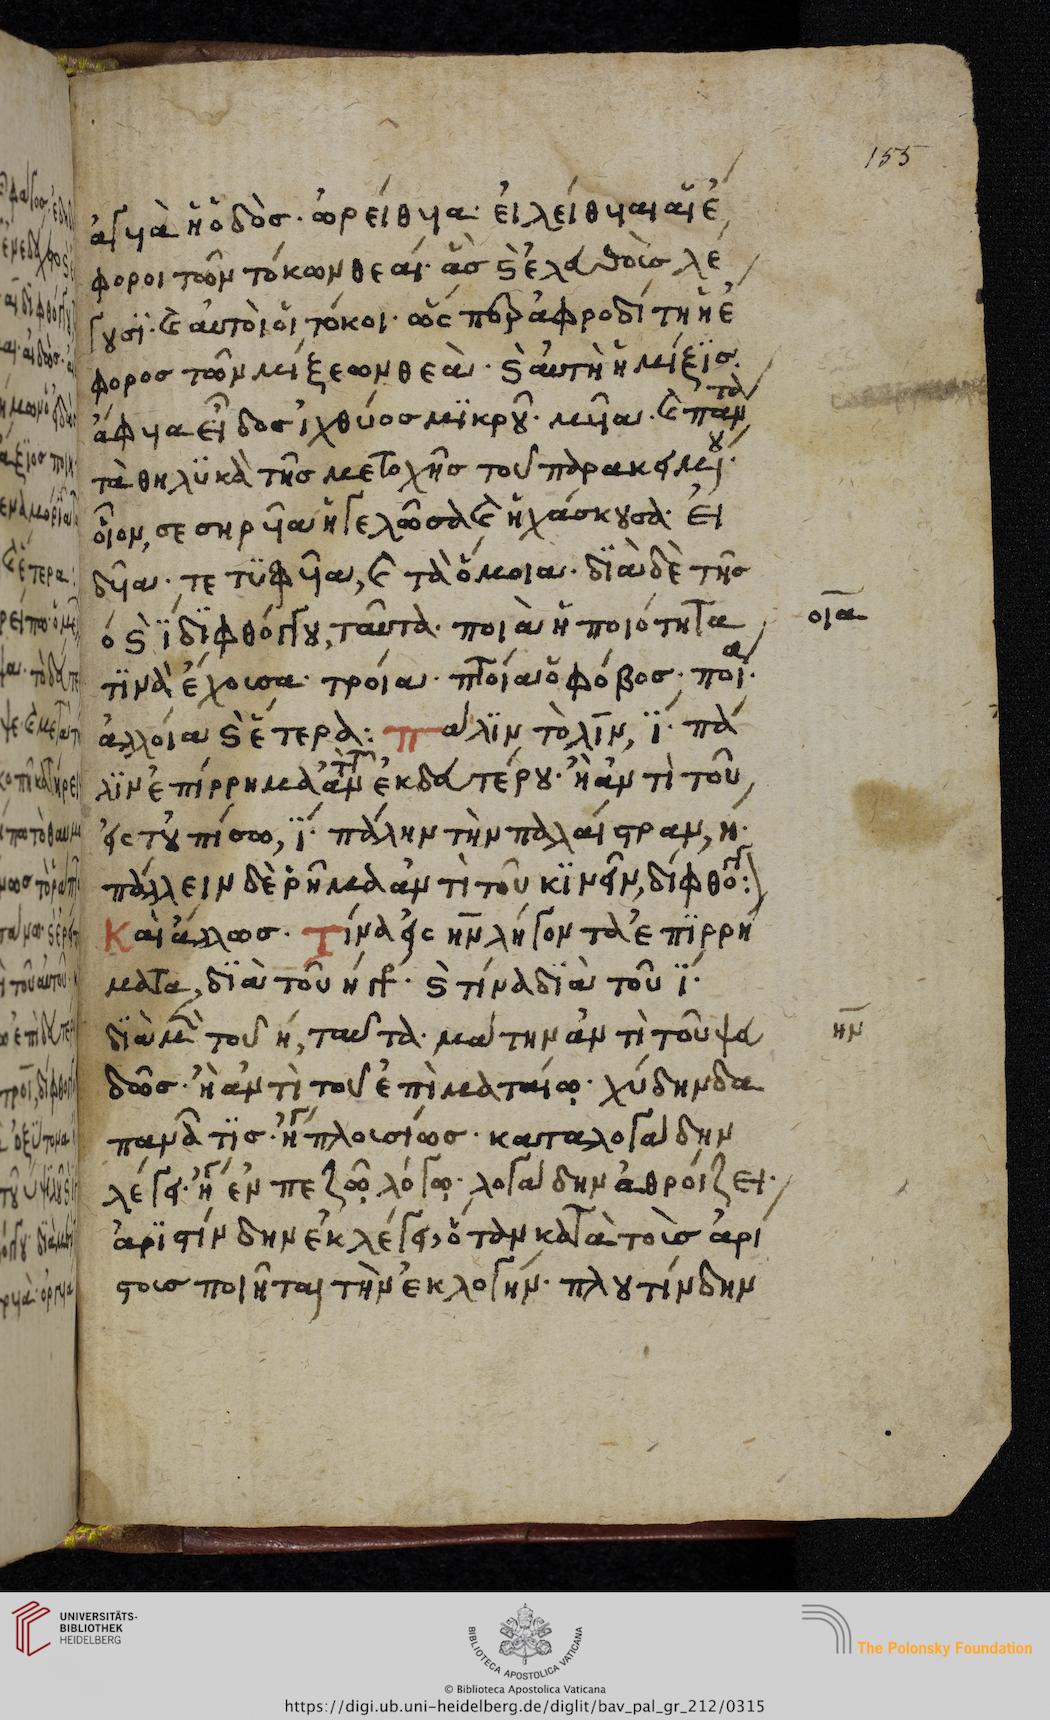 155
ἀγυιὰ ἡ ὁδὸς· ὠρείθυια· εἰλείθυιαι αἱ ἔ
φοροι τῶν τόκων θεαί· ἃς καὶ ἐλευθοῖς λέ
γουσι· καὶ αὐτοὶ οἱ τόκοι· ὡς περ ἀφροδίτη ἡ ἔ
φορος τῶν μίξεων θεὰ· καὶ αὐτὴ ἡ μίξις·
ἀφυια εἶδος ἰχθύος μικροῦ· μυῖα· καὶ πάν
τα τὰ θηλυκὰ τῆς μετοχῆς τοῦ παρακειμένου·
οἷον, σεσηρυῖα ἡ γελῶσα καὶ ἡ χάσκουσα· εἰ
δυῖα· τετυφυῖα, καὶ τὰ ὅμοια· διὰ δὲ τῆς
ο καὶ ι διφθόγγου, ταῦτα· ποιὰ ἡ ποιότητα
οια
τινὰ ἔχουσα· τροία· πτοία ὁ φόβος· ποία·
ἀλλοία καὶ ἑτέρα: πάλιν τὸ λιν, ι· πά
λιν ἐπίρρημα ἀντὶ τοῦ ἐκ δευτέρου· ἢ ἀντὶ τοῦ
εἰς τοὐπίσω, ι· πάλην τὴν παλαίστραν, η·
πάλλειν δὲ ῥῆμα ἀντὶ τοῦ κινεῖν, δίφθογγος:
Καὶ ἄλλως· Τίνα εἰς ην λήγοντα ἐπιρρή
ματα, διὰ τοῦ η γράφεται· καὶ τίνα διὰ τοῦ ι·
διὰ μὲν τοῦ η, ταῦτα· μάτην ἀντὶ τοῦ ψευ
ην
δῶς· ἢ ἀντὶ τοῦ ἐπὶ ματαίῳ· χύδην δα
πανᾷ τις· ἤγουν πλουσίως· καταλογάδην
λέγει· ἤγουν ἐν πεζῷ λόγῳ· λογάδην ἀθροίζει·
ἀριστίνδην ἐκλέγει, ὅταν κατὰ τοὺς ἀρί
στους ποιῆται τὴν ἐκλογήν· πλουτίνδην
UNIVERSITÄTS-
BIBLIOTHEK
HEIDELBERG
BIBLIOTECA APOSTOLICA VATICANA
The Polonsky Foundation
© Biblioteca Apostolica Vaticana
https://digi.ub.uni-heidelberg.de/diglit/bav_pal_gr_212/0315